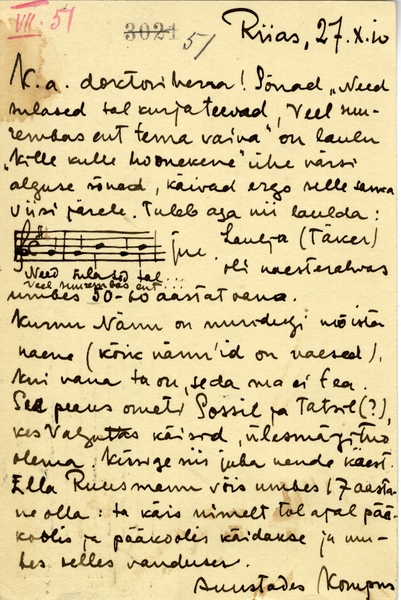 VII. 51
3024
51
Riias, 27.X.10
K. a. doktoriherra! Sõnad „Need
sulased tal kurja teevad, Veel suu-
rembas ent tema vaiva" on laulu
„Kille kulle hoonekene" ühe värsi
alguse sõnad, käivad ergo selle sama
viisi järele. Tuleb aga nii laulda:
jne. Laulja (Täker)
Need sulased tal...
Veel suurembas ent...
oli naesterahvas
umbes 50-60 aastat vana.
Kusnu Nänn on muidugi mõista
naene (kõik nänn'id on naesed).
Kui vana ta on, seda ma ei tea.
Sed peaks ometi Sossil ja Tatsil (?),
kes Valgutas käisid, ülesmärgitud
olema. Küsige nii juba nende käest.
Ella Ruusmann võis umbes 17 aasta-
ne olla: ta käis nimelt tol ajal pää-
koolis ja pääkoolis käidakse ju um-
bes selles vanduses.
Auustades Kompus